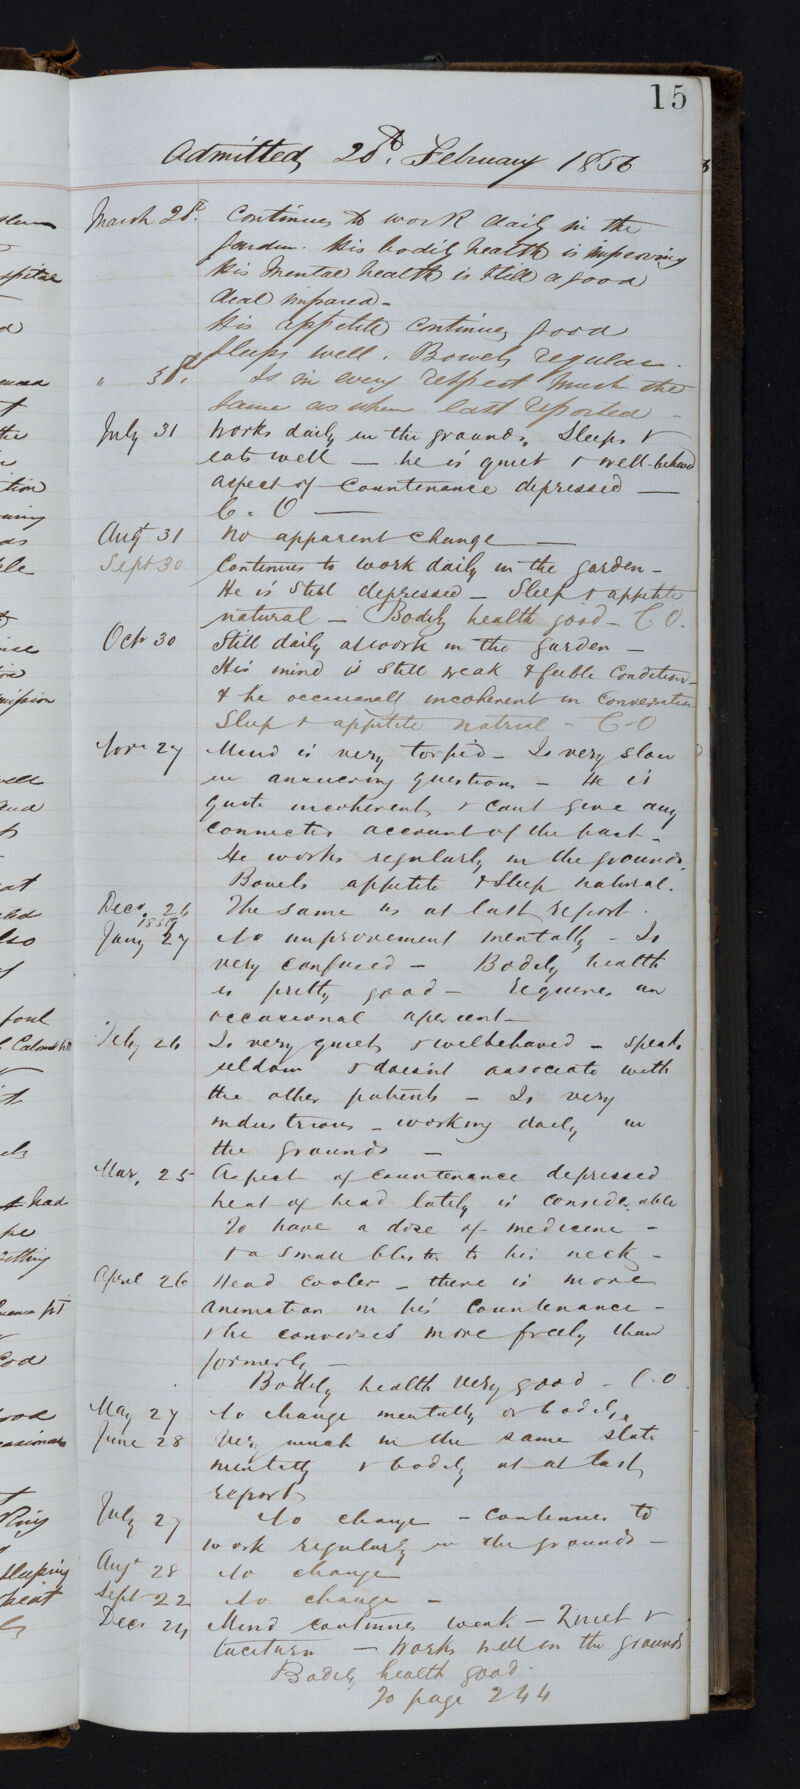 15
Admitted, 28th. February 1856
March 28th. Continues to work daily in the
garden. His bodily health is improving
His Mental health is still a good
deal impared -
His appetite continues good
Sleeps well. Bowels regular.
" 31st. Is in every respect much the
same as when last reported -
July 31 Works daily in the grounds, Sleeps &
eats well — he is quiet & well-behaved
aspect of countenance depressed —
C. O —
Augt 31 No apparent change —
Sept 30 Continues to work daily in the garden -
He is still depressed - Sleep & appetite
natural - Bodily health good - C O.
Octr 30 Still daily at work in the garden -
His mind is still weak & feeble Condition -
& he occasionally incoherent in conversation
Sleep & appetite natural - C-O
Novr 27 Mind is very torpid - Is very slow
in answering questions - He is
quite incoherent & cant give any
connected account of the past -
He works regularly in the grounds.
Bowels appetite & sleep natural.
Decr. 26 The same as at last report.
1857
Jany 27 No improvement mentally - Is
very confused - Bodily health
is pretty good - requires an
occasional aperient -
Feby 26 Is very quiet & welbehaved - speaks
seldom & doesnt associate with
the other patients - Is very
industrious - working daily in
the grounds -
Mar. 25 Aspect of countenance depressed
heat of head lately is considerable
To have a dose of medicine -
& a small blister to his neck -
April 26 Head cooler - there is more
animation in his countenance -
& he converses more freely than
formerly -
Bodily health very good - C.O
May 27 No change mentally or bodily.
June 28 Very much in the same state
mentally & bodily as at last
report
July 27 No change - continues to
work regularly in the grounds -
Augt 28 No change
Sept 22 No change -
Decr 24 Mind continues weak - Quiet &
taciturn - Works well in the grounds
Bodily health good.
To page 244